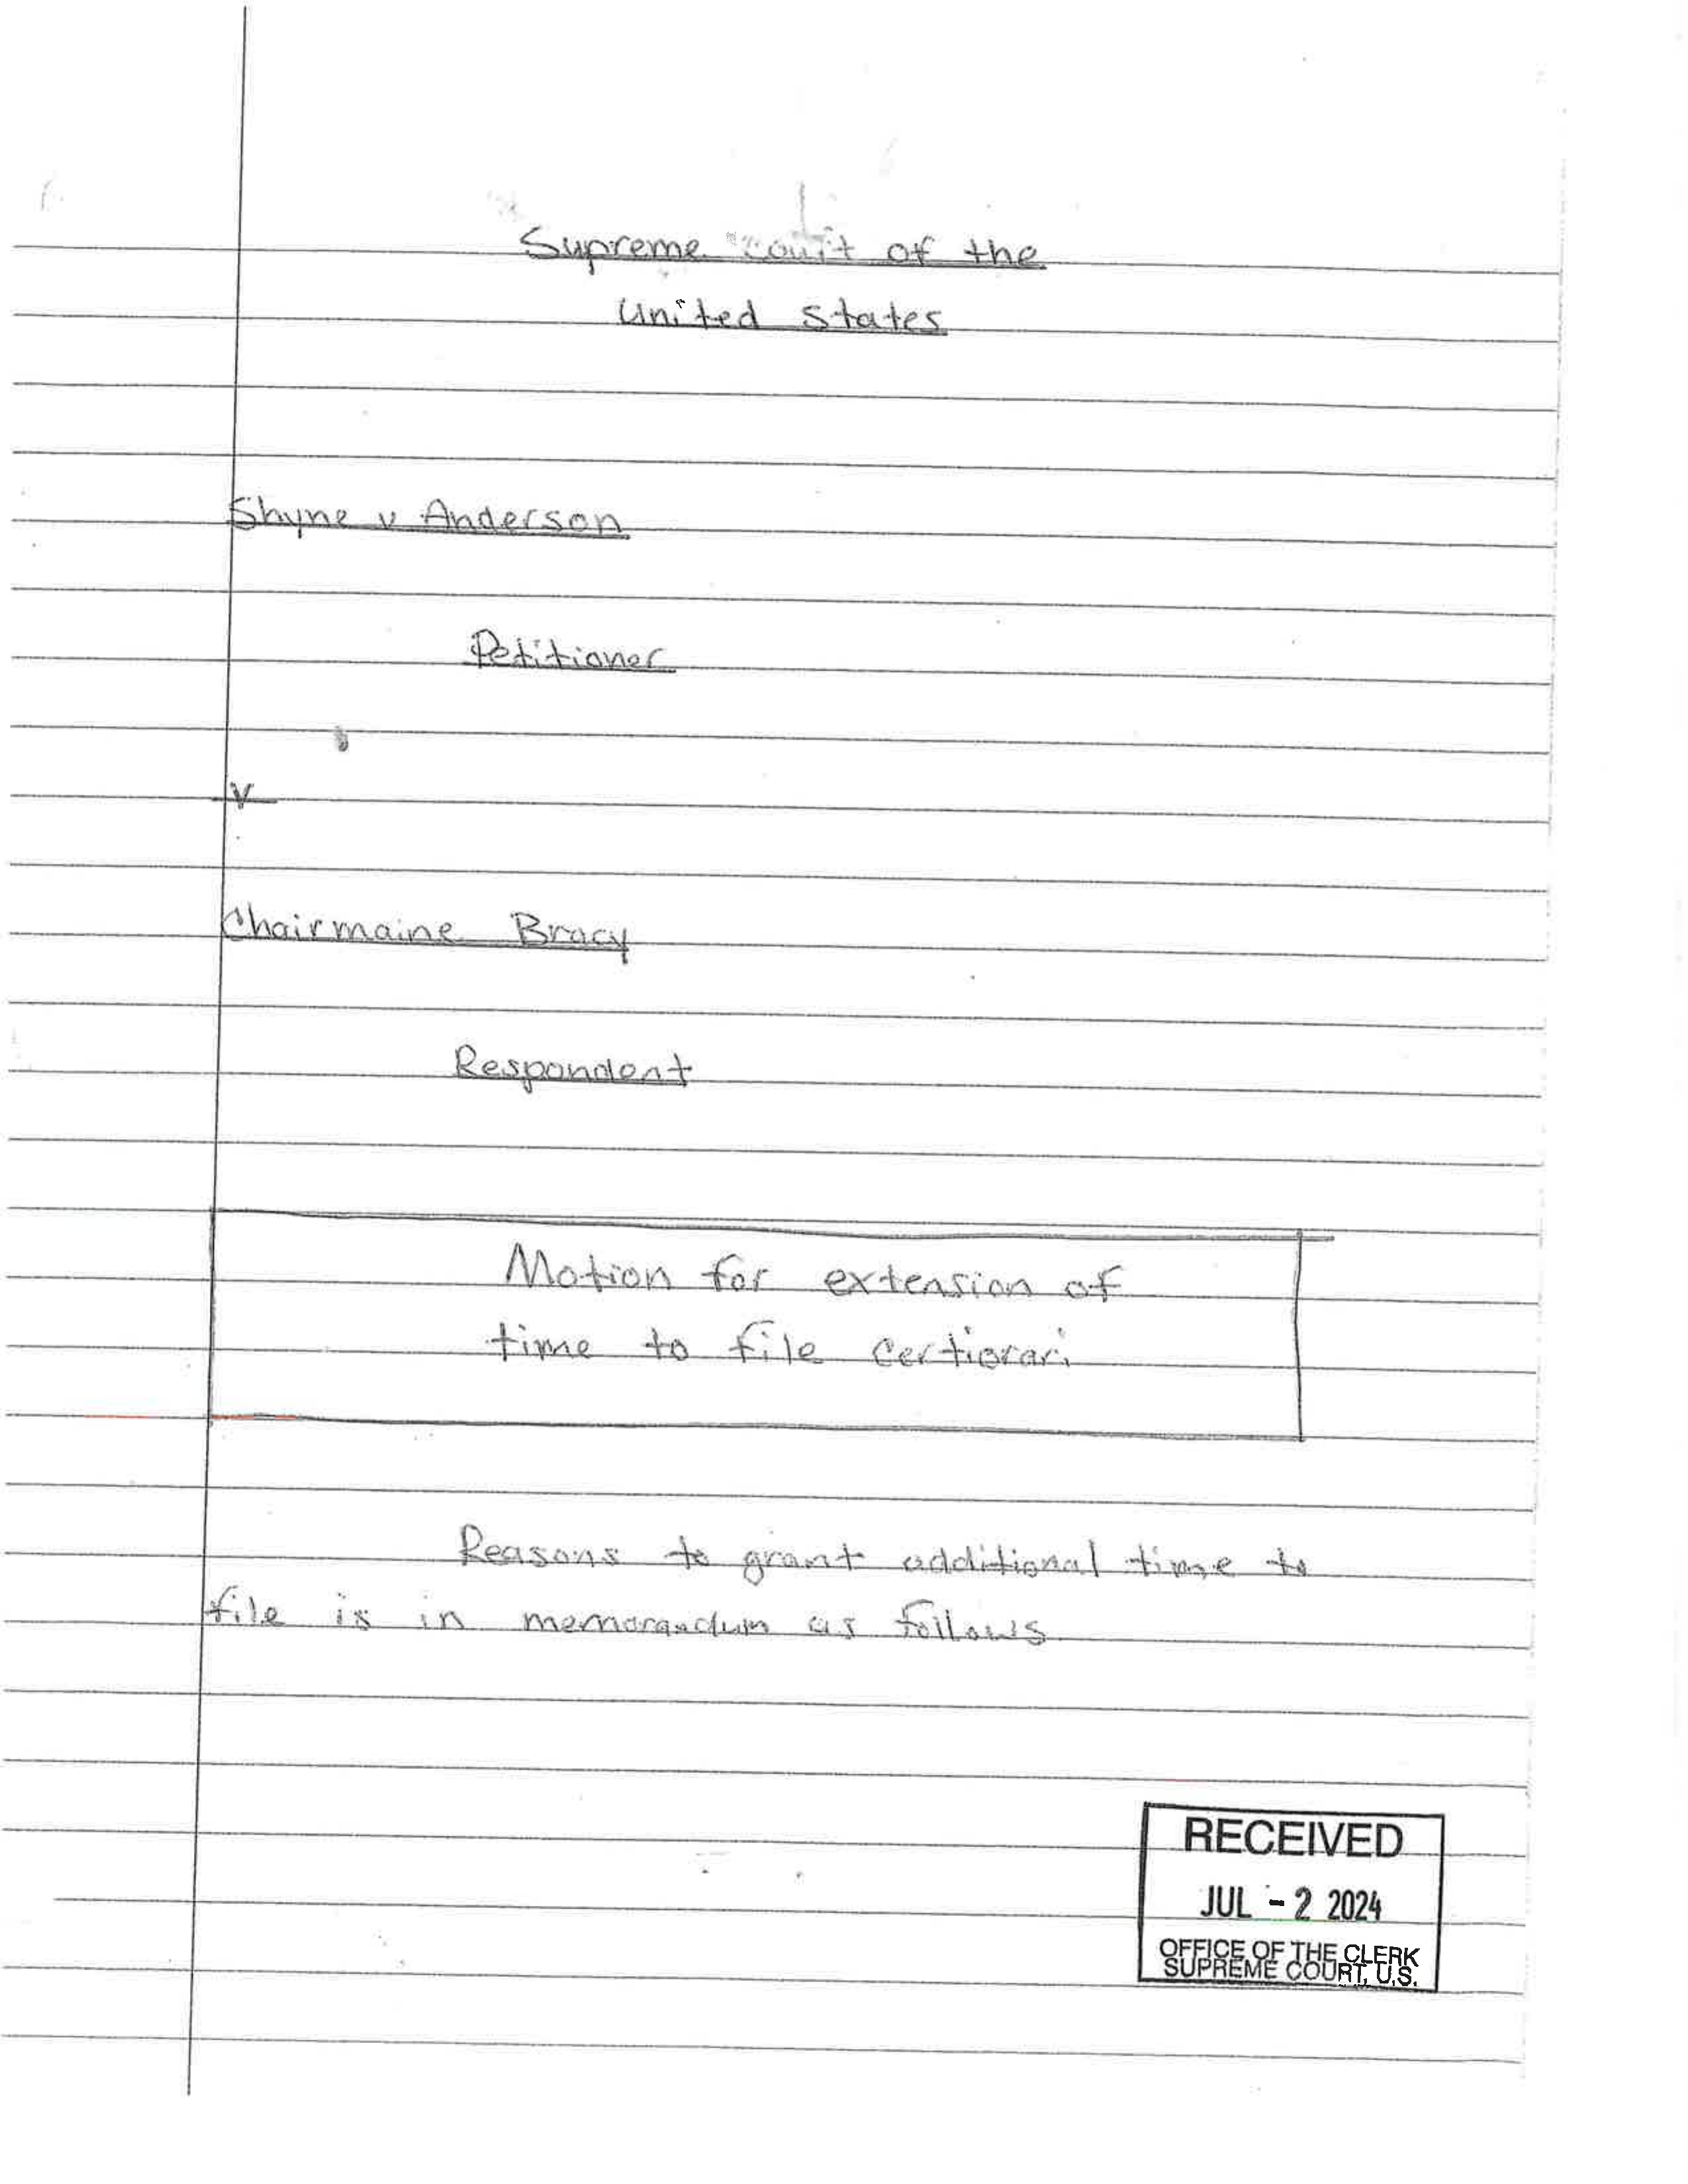 Supreme court of the
United States
Shyne v Anderson
Petitioner
V
Chairmaine Bracy
Respondent
Motion for extension of
time to file certiorari
Reasons to grant additional time to
file is in memorandum as follows
RECEIVED
JUL - 2 2024
OFFICE OF THE CLERK
SUPREME COURT, U.S.